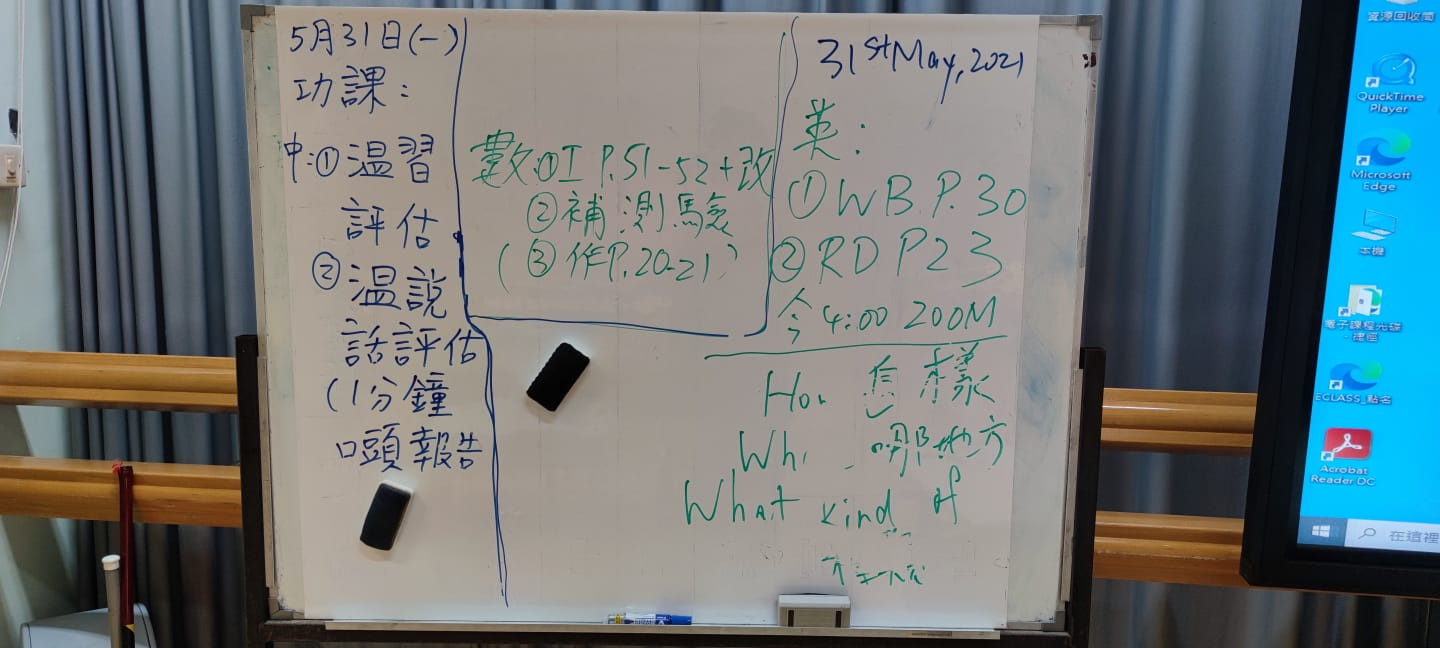 5月31日(一)
功課：
中:①温習
評估
②温說
話評估
(1分鐘
口頭報告
數:①工 P.51-52+改
②補測驗
(③作P.20-21)
31st May, 2021
英:
①WB P.30
②RD P23
今 4:00 ZOOM
怎樣
哪地方
What kind of
資源回收筒
QuickTime
Player
Microsoft
Edge
本機
電子課程光碟
- 捷徑
ECLASS_點名
Acrobat
Reader DC
在這裡